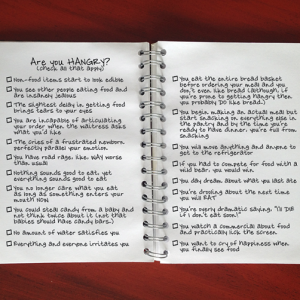 Are you HANGRY?
(check all that apply)
Non-food items start to look edible
You see other people eating food and
are insanely jealous
The slightest delay in getting food
brings tears to your eyes
You are incapable of articulating
your order when the waitress asks
what you'd like
The cries of a frustrated newborn
perfectly parallel your emotion
You have road rage, like, WAY worse
than usual
Nothing sounds good to eat, yet
everything sounds good to eat
You no longer care what you eat
as long as something enters your
mouth NOW
You could steal candy from a baby and
not think twice about it (not that
babies should have candy bars)
No amount of water satisfies you
Everything and everyone irritates you
You eat the entire bread basket
before ordering your meal and you
don't even like bread (although, if
you're prone to getting hangry then
you probably DO like bread)
You begin making an actual meal but
start snacking on everything else in
the pantry and by the time you're
ready to have dinner, you're full from
snacking
You will maul anything and anyone to
get to the refrigerator
If you had to compete for food with a
wild bear, you would win
You day dream about what you last ate
You're drooling about the next time
you will EAT
You're overly dramatic saying, "I'll DIE
if I don't eat soon!"
You watch a commercial about food
and practically lick the screen
You want to cry of happiness when
you finally see food